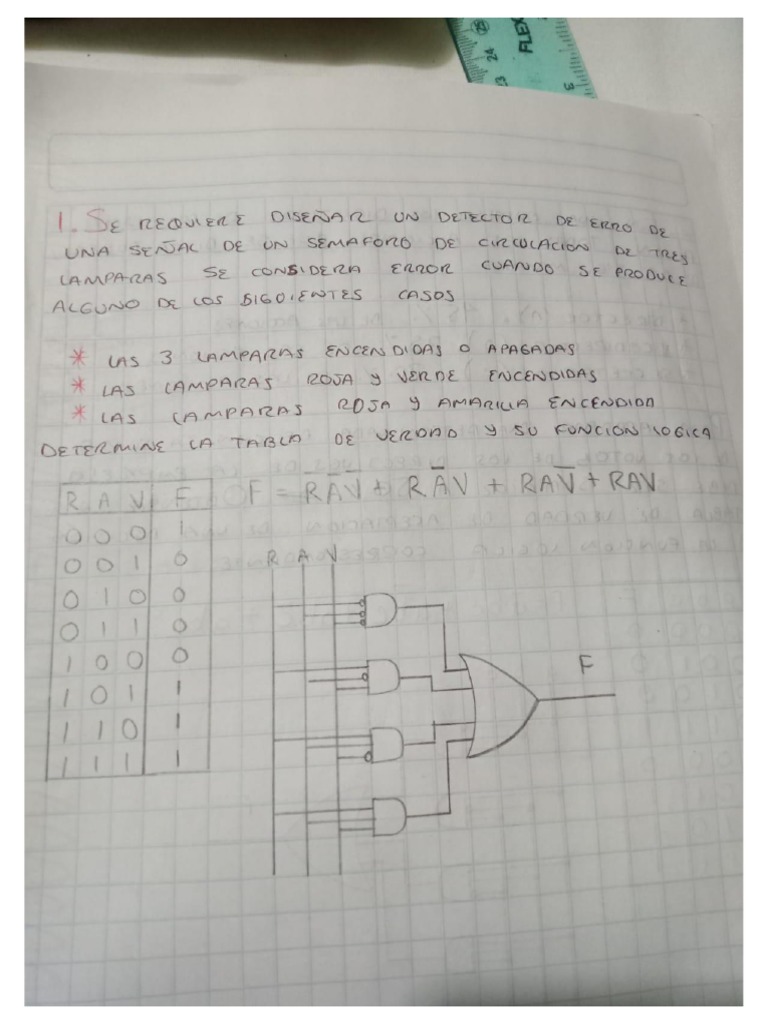 FLEX
25
24
23
3
1. SE REQUIERE DISEÑAR UN DETECTOR DE ERRO DE
UNA SEÑAL DE UN SEMAFORO DE CIRCULACION DE TRES
LAMPARAS SE CONSIDERA ERROR CUANDO SE PRODUCE
ALGUNO DE LOS SIGUIENTES CASOS
* LAS 3 LAMPARAS ENCENDIDAS O APAGADAS
* LAS LAMPARAS ROJA Y VERDE ENCENDIDAS
* LAS LAMPARAS ROJA Y AMARILLA ENCENDIDA
DETERMINE LA TABLA DE VERDAD Y SU FUNCION LOGICA
R A V F
F = R̅A̅V̅ + RA̅V + RAV̅ + RAV
0 0 0 1
0 0 1 0
0 1 0 0
0 1 1 0
1 0 0 0
1 0 1 1
1 1 0 1
1 1 1 1
R A V
F